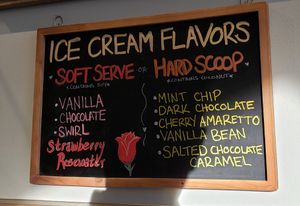 ICE CREAM FLAVORS
SOFT SERVE OR HARD SCOOP
*CONTAINS SOY* *CONTAINS COCONUT*
• VANILLA
• CHOCOLATE
• SWIRL
Strawberry
• MINT CHIP
• DARK CHOCOLATE
• CHERRY AMARETTO
• VANILLA BEAN
• SALTED CHOCOLATE
CARAMEL